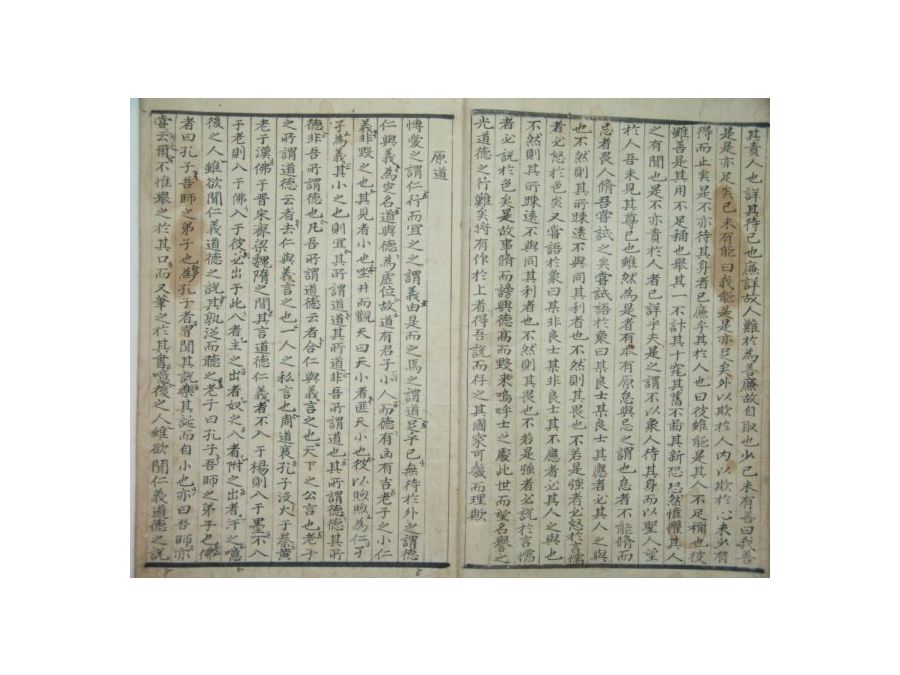 其責人也詳其待己也廉詳故人難於為善廉故自取也少己未有善曰我善
是是亦足矣己未有能曰我能是是亦足矣外以欺於人內以欺於心未少有
得而止矣是不亦待其身者已廉乎其於人也曰彼雖能是其人不足稱也彼
雖善是其用不足稱也舉其一不計其十究其舊不啚其新恐恐然惟懼其人
之有聞也是不亦責於人者已詳乎夫是之謂不以衆人待其身而以聖人望
於人吾未見其尊己也雖然為是者有本有原怠與忌之謂也怠者不能脩而
忌者畏人脩吾嘗試之矣嘗試語於衆曰某良士某良士其應者必其人之與
也不然則其所踈遠不與同其利者也不然則其畏也不若是強者必怒於言懦
者必怒於色矣又嘗語於衆曰某非良士某非良士其不應者必其人之與也
不然則其所踈遠不與同其利者也不然則其畏也不若是強者必說於言懦
者必說於色矣是故事脩而謗興德高而毀來嗚呼士之處此世而望名譽之
光道德之行難矣將有作於上者得吾說而存之其國家可幾而理歟
原道
博愛之謂仁行而宜之之謂義由是而之焉之謂道足乎己無待於外之謂德
仁與義為定名道與德為虛位故道有君子小人而德有凶有吉老子之小仁
義非毀之也其見者小也坐井而觀天曰天小者匪天小也彼以煦煦為仁孑
孑為義其小之也則宜其所謂道道其所道非吾所謂道也其所謂德德其所
德非吾所謂德也凡吾所謂道德云者合仁與義言之也天下之公言也老子
之所謂道德云者去仁與義言之也一人之私言也周道衰孔子沒火于秦黃
老子漢佛于晋宋齊梁魏隋之間其言道德仁義者不入于楊則入于墨不入
于老則入于佛入于彼必出于此入者主之出者奴之入者附之出者汙之噫
後之人雖欲聞仁義道德之說其孰泛而聽之老子曰孔子吾師之弟子也佛
者曰孔子吾師之弟子也為孔子者習聞其說樂其誕而自小也亦曰吾師亦
嘗云爾不惟舉之於其口而又筆之於其書噫後之人雖欲聞仁義道德之說